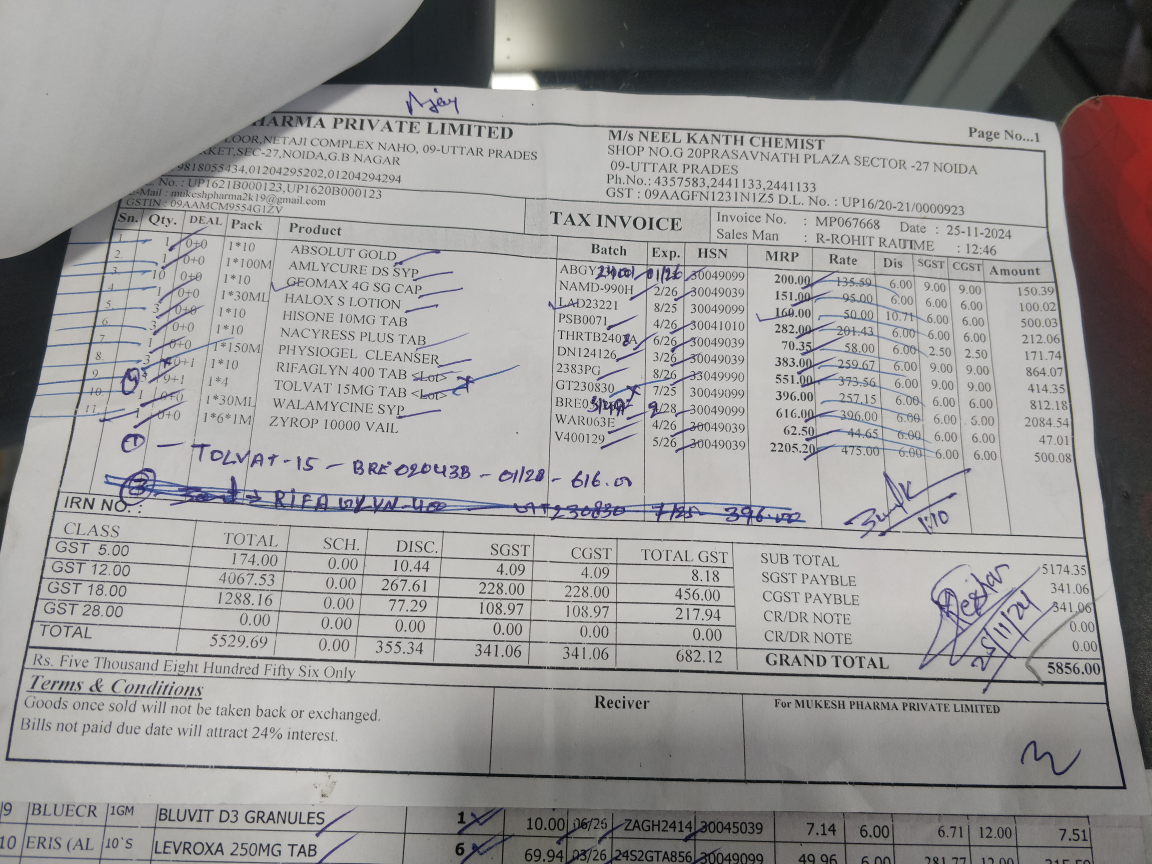 Ajay
HARMA PRIVATE LIMITED
LOOR,NETAJI COMPLEX NAHO, 09-UTTAR PRADES
KET,SEC-27,NOIDA,G.B NAGAR
9818055434,01204295202,01204294294
D.L. No. : UP1621B000123,UP1620B000123
E-Mail : mukeshpharma2k19@gmail.com
GSTIN : 09AAMCM9554G1ZV
M/s NEEL KANTH CHEMIST
Page No...1
SHOP NO.G 20PRASAVNATH PLAZA SECTOR -27 NOIDA
09-UTTAR PRADES
Ph.No.: 4357583,2441133,2441133
GST : 09AAGFN1231N1Z5 D.L. No. : UP16/20-21/0000923
TAX INVOICE
Invoice No. : MP067668 Date : 25-11-2024
Sales Man : R-ROHIT RAUT TIME : 12:46
Sn. Qty. DEAL Pack Product Batch Exp. HSN MRP Rate Dis SGST CGST Amount
1. 1 0+0 1*10 ABSOLUT GOLD 01/26 30049099 200.00 135.59 6.00 9.00 9.00 150.39
2. 1 0+0 1*100M AMLYCURE DS SYP NAMD-990H 2/26 30049039 151.00 95.00 6.00 6.00 6.00 100.02
3. 10 0+0 1*10 GEOMAX 4G SG CAP LAD23221 8/25 30049099 160.00 50.00 10.71 6.00 6.00 500.03
4. 1 0+0 1*30ML HALOX S LOTION PSB0071 4/26 30041010 282.00 201.43 6.00 6.00 6.00 212.06
5. 3 0+0 1*10 HISONE 10MG TAB 6/26 30049099 70.35 58.00 6.00 2.50 2.50 171.74
6. 3 0+0 1*10 NACYRESS PLUS TAB DN124126 3/26 30049039 383.00 259.67 6.00 9.00 9.00 864.07
7. 1 0+0 1*150M PHYSIOGEL CLEANSER 2383PG 8/26 33049990 551.00 373.56 6.00 9.00 9.00 414.35
8. 3 0+1 1*10 RIFAGLYN 400 TAB <Lot> GT230830 7/25 30049099 396.00 257.15 6.00 6.00 6.00 812.18
9. 9+1 1*4 TOLVAT 15MG TAB <Lot> 30049099 616.00 396.00 6.00 6.00 6.00 2084.54
10. 1 0+0 1*30ML WALAMYCINE SYP WAR063E 4/26 30049039 62.50 44.65 6.00 6.00 6.00 47.01
11. 1 0+0 1*6*1M ZYROP 10000 VAIL V400129 5/26 30049039 2205.20 475.00 6.00 6.00 6.00 500.08
① — TOLVAT-15 — BRE02043B - 01/28 - 616.00
RIFAGLYN-400 GT230830 7/25 - 396.00
1:10
IRN NO. :
CLASS TOTAL SCH. DISC. SGST CGST TOTAL GST
GST 5.00 174.00 0.00 10.44 4.09 4.09 8.18
GST 12.00 4067.53 0.00 267.61 228.00 228.00 456.00
GST 18.00 1288.16 0.00 77.29 108.97 108.97 217.94
GST 28.00 0.00 0.00 0.00 0.00 0.00 0.00
TOTAL 5529.69 0.00 355.34 341.06 341.06 682.12
SUB TOTAL 5174.35
SGST PAYBLE 341.06
CGST PAYBLE 341.06
CR/DR NOTE 0.00
CR/DR NOTE 0.00
GRAND TOTAL 5856.00
25/11/24
Rs. Five Thousand Eight Hundred Fifty Six Only
Terms & Conditions
Goods once sold will not be taken back or exchanged.
Bills not paid due date will attract 24% interest.
Reciver
For MUKESH PHARMA PRIVATE LIMITED
9 BLUECR 1GM BLUVIT D3 GRANULES 1 10.00 06/26 ZAGH2414 30045039 7.14 6.00 6.71 12.00 7.51
10 ERIS (AL 10`S LEVROXA 250MG TAB 6 69.94 03/26 24S2GTA856 30049099 49.96 6.00 281.77 12.00